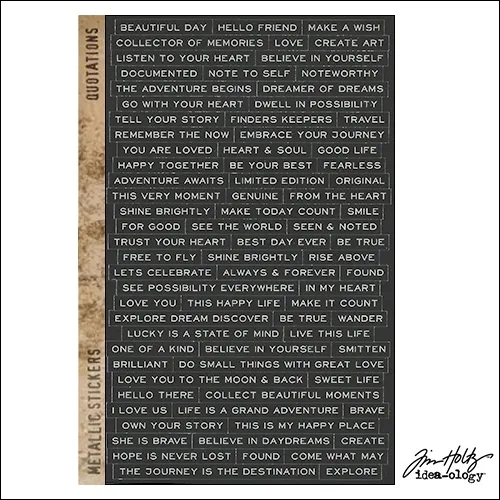 QUOTATIONS
METALLIC STICKERS
BEAUTIFUL DAY HELLO FRIEND MAKE A WISH
COLLECTOR OF MEMORIES LOVE CREATE ART
LISTEN TO YOUR HEART BELIEVE IN YOURSELF
DOCUMENTED NOTE TO SELF NOTEWORTHY
THE ADVENTURE BEGINS DREAMER OF DREAMS
GO WITH YOUR HEART DWELL IN POSSIBILITY
TELL YOUR STORY FINDERS KEEPERS TRAVEL
REMEMBER THE NOW EMBRACE YOUR JOURNEY
YOU ARE LOVED HEART & SOUL GOOD LIFE
HAPPY TOGETHER BE YOUR BEST FEARLESS
ADVENTURE AWAITS LIMITED EDITION ORIGINAL
THIS VERY MOMENT GENUINE FROM THE HEART
SHINE BRIGHTLY MAKE TODAY COUNT SMILE
FOR GOOD SEE THE WORLD SEEN & NOTED
TRUST YOUR HEART BEST DAY EVER BE TRUE
FREE TO FLY SHINE BRIGHTLY RISE ABOVE
LETS CELEBRATE ALWAYS & FOREVER FOUND
SEE POSSIBILITY EVERYWHERE IN MY HEART
LOVE YOU THIS HAPPY LIFE MAKE IT COUNT
EXPLORE DREAM DISCOVER BE TRUE WANDER
LUCKY IS A STATE OF MIND LIVE THIS LIFE
ONE OF A KIND BELIEVE IN YOURSELF SMITTEN
BRILLIANT DO SMALL THINGS WITH GREAT LOVE
LOVE YOU TO THE MOON & BACK SWEET LIFE
HELLO THERE COLLECT BEAUTIFUL MOMENTS
I LOVE US LIFE IS A GRAND ADVENTURE BRAVE
OWN YOUR STORY THIS IS MY HAPPY PLACE
SHE IS BRAVE BELIEVE IN DAYDREAMS CREATE
HOPE IS NEVER LOST FOUND COME WHAT MAY
THE JOURNEY IS THE DESTINATION EXPLORE
Tim Holtz
idea-ology